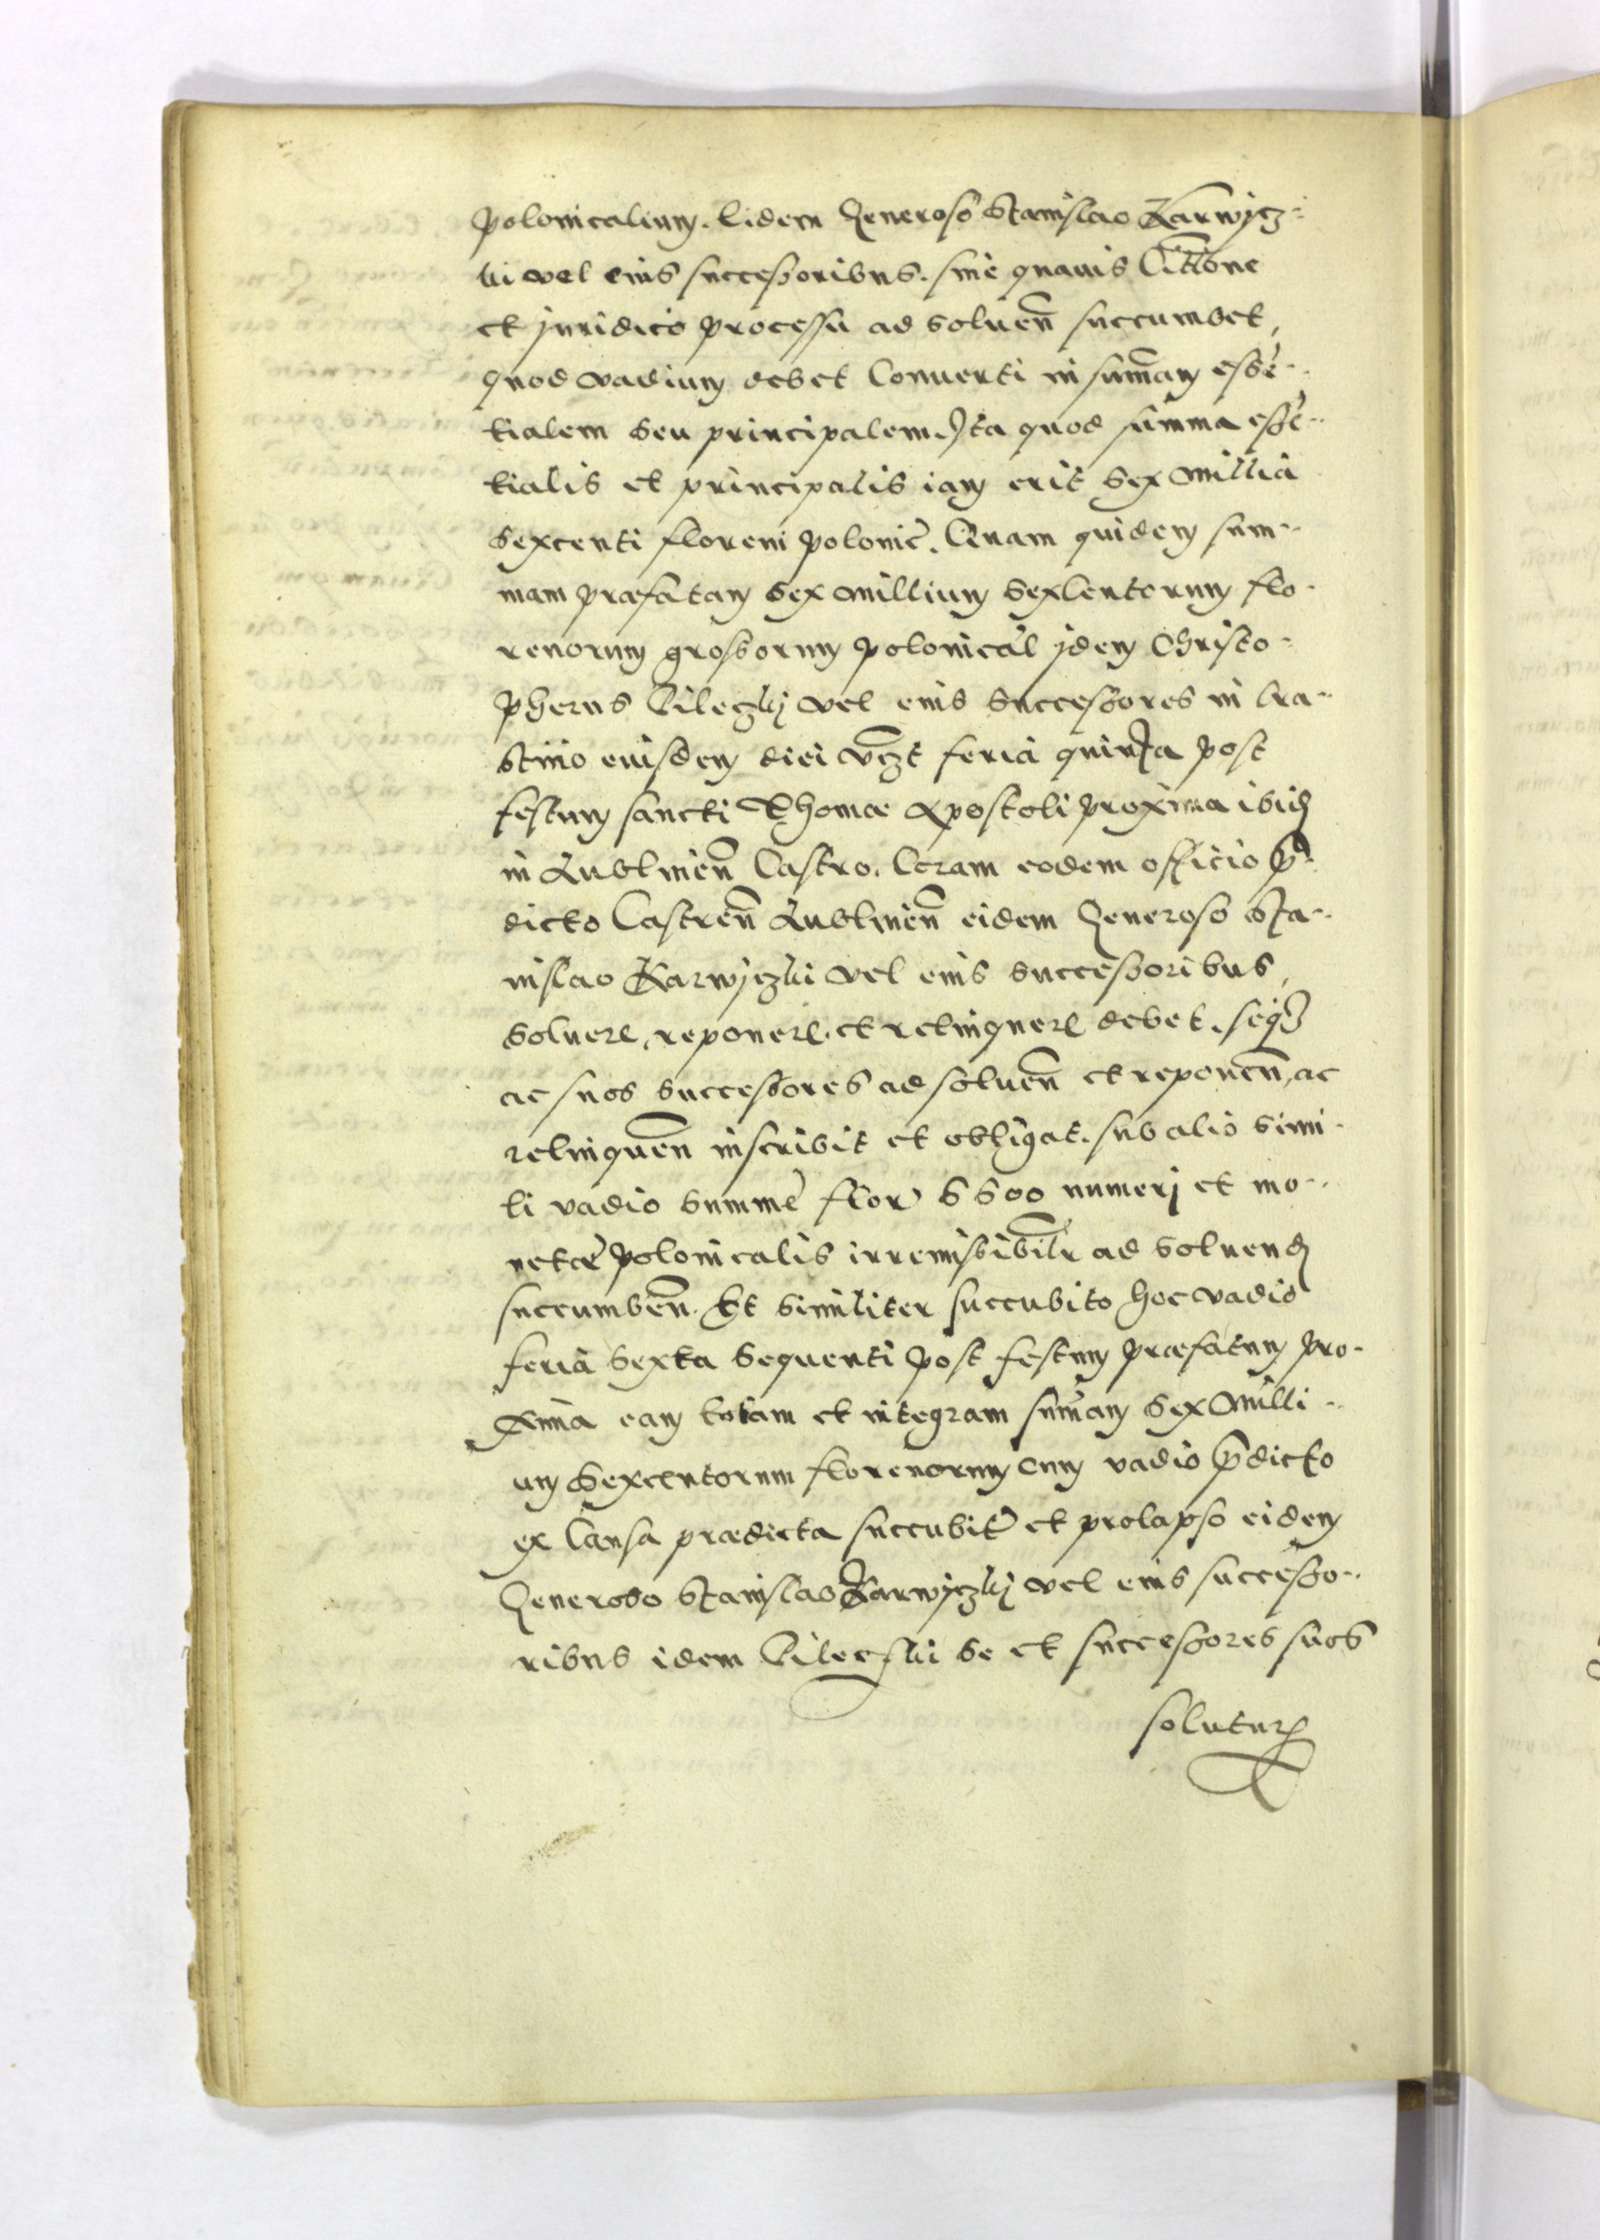 polonicalium. Eidem Generoso Stanislao Karwycz-
ki vel eius successoribus. sine quauis Cittone
et juridico processu ad soluen succumbet,
quod vadium debet conuerti in sumam esse-
tialem seu principalem. Ita quod summa esse-
tialis et principalis iam erit sex millia
sexcenti floreni polonic. Quam quidem sum-
mam praefatam sex millium sexcentorum flo-
renorum grossorum polonical jdem Christo-
pherus Gileczkj vel eius successores in cra-
stino euisdem diei vczt feria quinta post
festum sancti Thomae Apostoli proxima ibid
in Lublinen Castro. Coram eodem officio p-
dicto Castren Lublinen eidem Generoso Sta-
nislao Karwyczki vel eius successoribus,
soluere, reponere et relinquere debet. seq
ac suos successores ad soluen et reponen, ac
relinquen inscribit et obligat. sub alio simi-
li vadio summe flor 6600 numerj et mo-
netae polonicalis irremissibilr ad soluend
succumben. Et similiter succubito hoc vadio
feria sexta sequenti post festum praefatum pro-
xima eam totam et integram sumam sex milli-
um sexcentorum florenorum cum vadio pdicto
ex causa praedicta succubit et prolapso eidem
Generoso Stanislao Karwyczkj vel eius successo-
ribus idem Gilecski se et successores suos
solutur